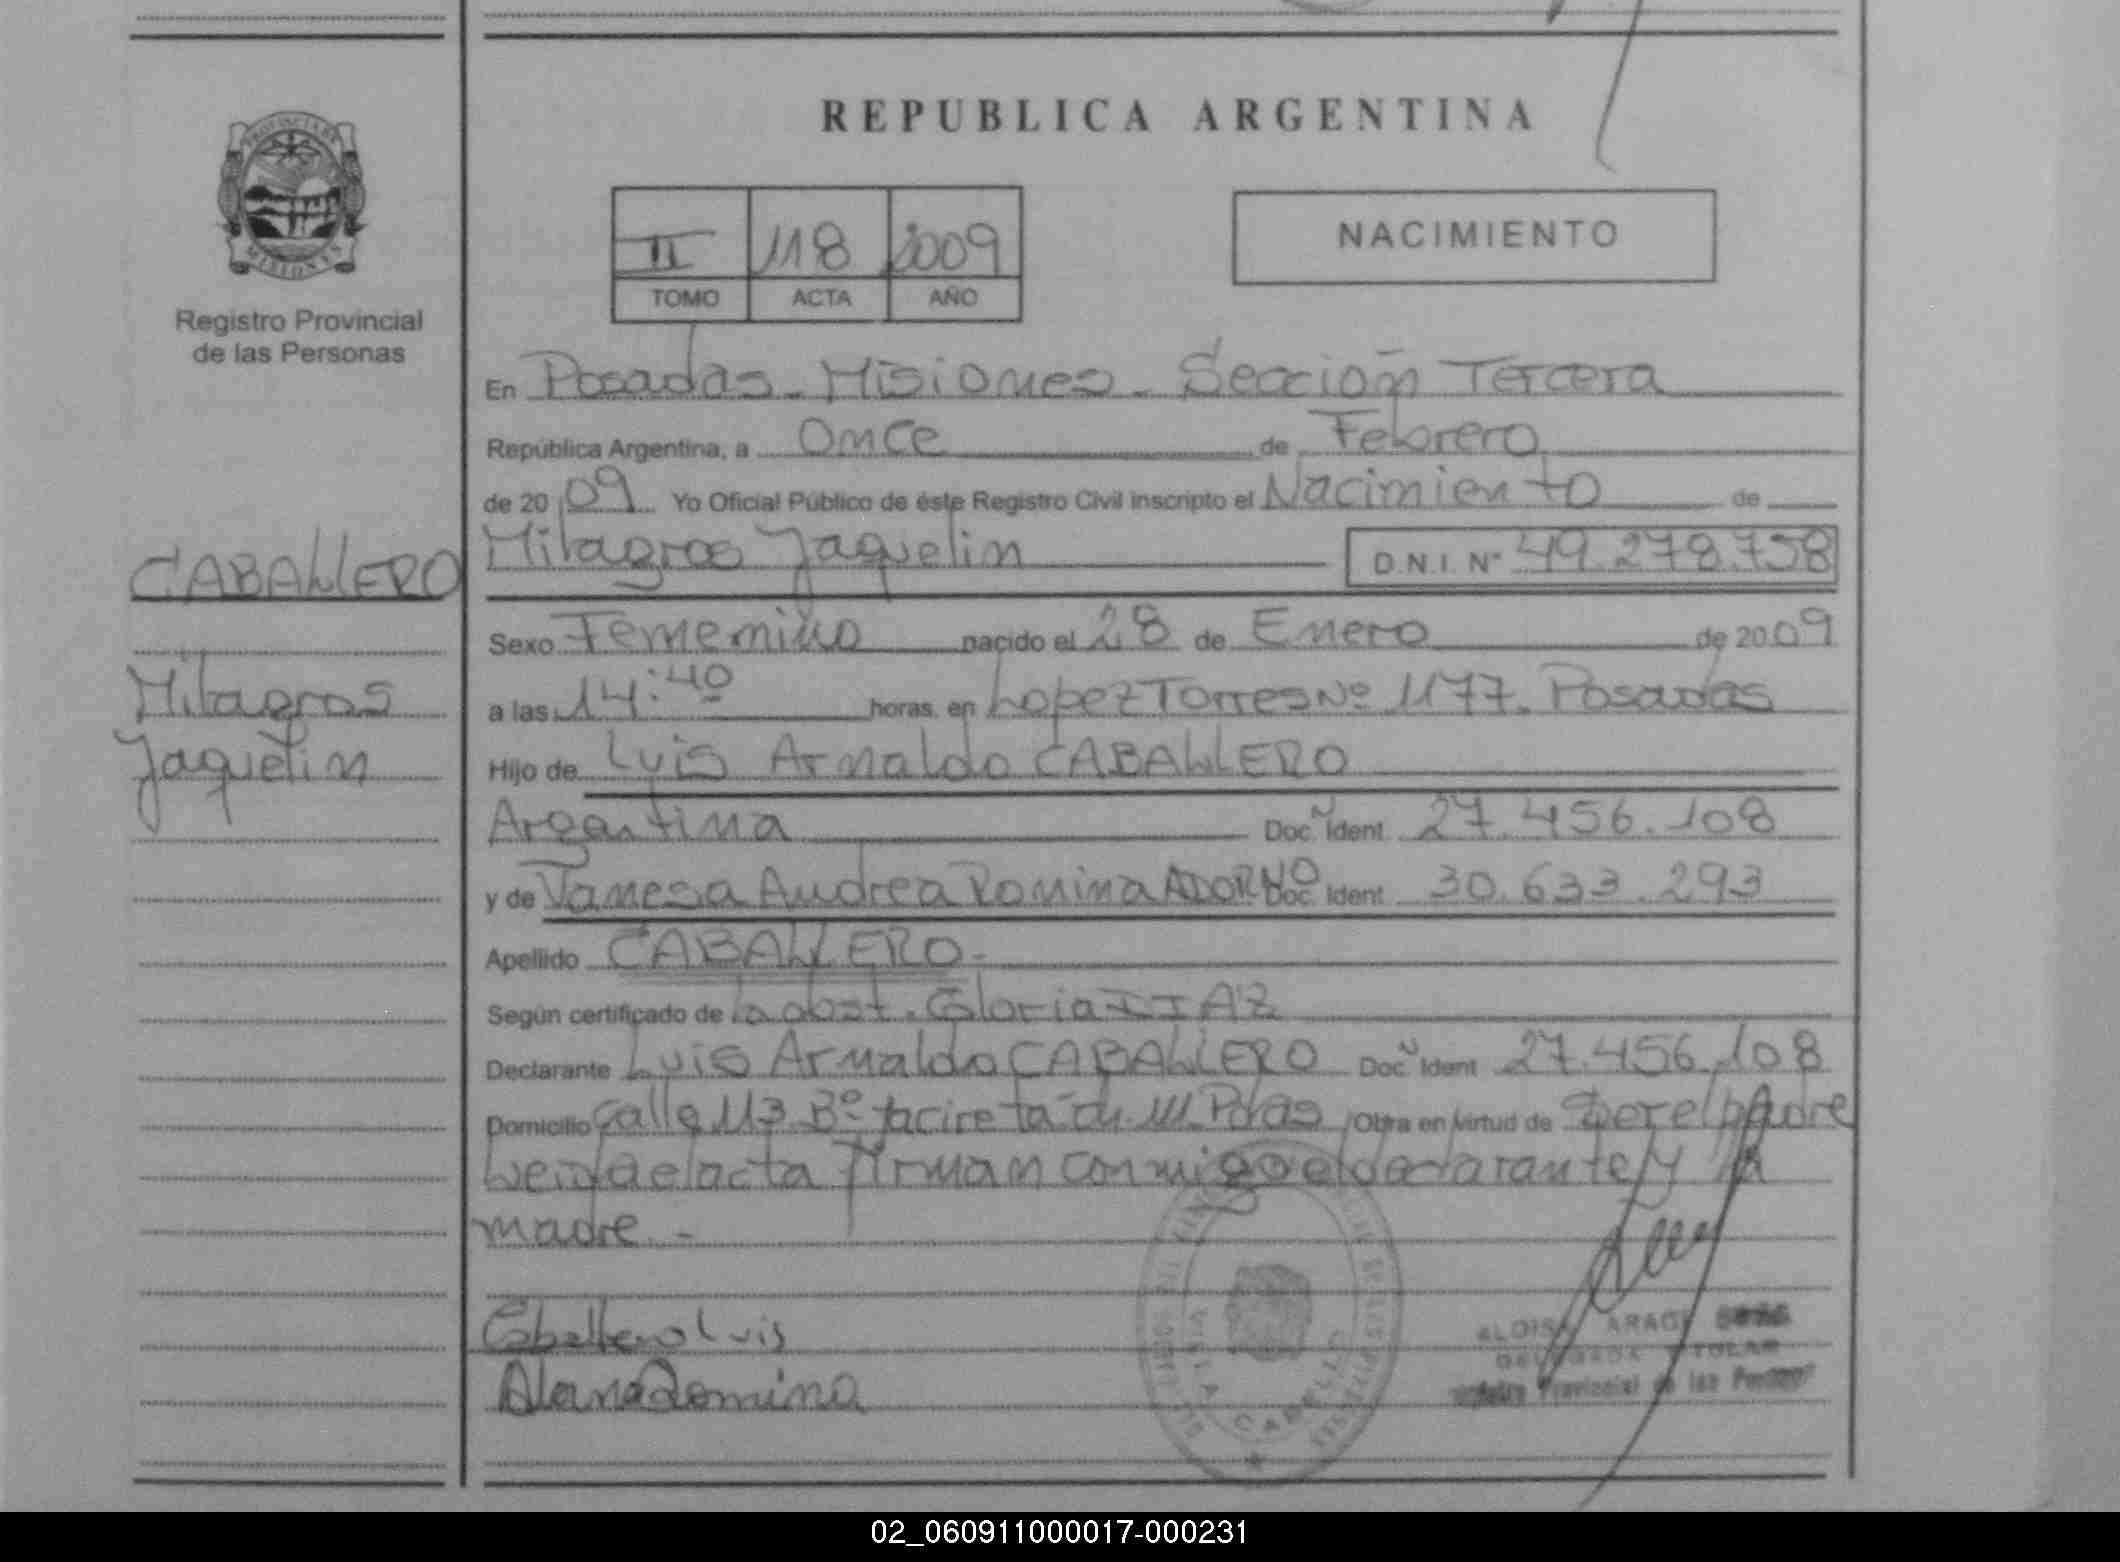 REPUBLICA ARGENTINA
PROVINCIA DE
MISIONES
Registro Provincial
de las Personas
II 118 2009
TOMO ACTA AÑO
NACIMIENTO
En Posadas - Misiones - Sección Tercera
República Argentina, a Once de Febrero
de 2009 Yo Oficial Público de éste Registro Civil inscripto el Nacimiento de
Milagros Jaquelin D.N.I. Nº 49.278.758
CABALLERO
Milagros
Jaquelin
Sexo Femenino nacido el 28 de Enero de 2009
a las 14:40 horas, en Lopez Torres Nº 1177. Posadas
Hijo de Luis Arnaldo CABALLERO
Argentina Doc. Ident 27.456.108
y de Vanesa Andrea Romina ADORNO Doc. Ident 30.633.293
Apellido CABALLERO -
Según certificado de la obst. Gloria
Declarante Luis Arnaldo CABALLERO Doc. Ident 27.456.108
Domicilio Calle 113 Bº Yacireta Pdas Obra en virtud de Ser el padre
Leida el acta firman conmigo el declarante y la
madre. -
Caballero Luis
Romina
VILLA CABELLO
DELEGADA TITULAR
Provincial de las
02_060911000017-000231